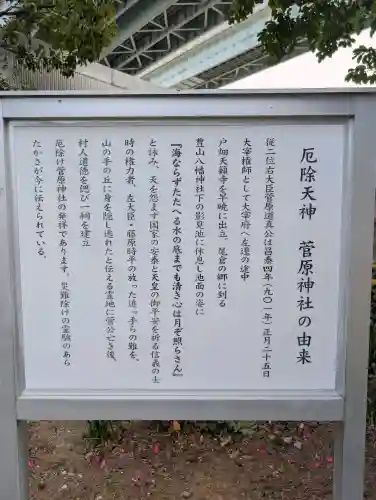 厄除天神　菅原神社の由来
従二位右大臣菅原道真公は昌泰四年（九〇一年）正月二十五日
大宰権師として大宰府へ左遷の途中
戸畑天籟寺を早暁に出立。尾倉の郷に到る
豊山八幡神社下の影見池に休息し池面の姿に
『海ならずたたへる水の底までも清き心は月ぞ照らさん』
と詠み、天を怨まず国家の安泰と天皇の御平安を祈る信義の士
時の権力者、左大臣・藤原時平の放った追っ手らの難を、
山の手の丘に身を隠し逃れたと伝える霊地に菅公亡き後、
村人道徳を偲び一祠を建立
厄除け菅原神社の発祥であります。災難除けの霊験のあら
たかさが今に伝えられている。